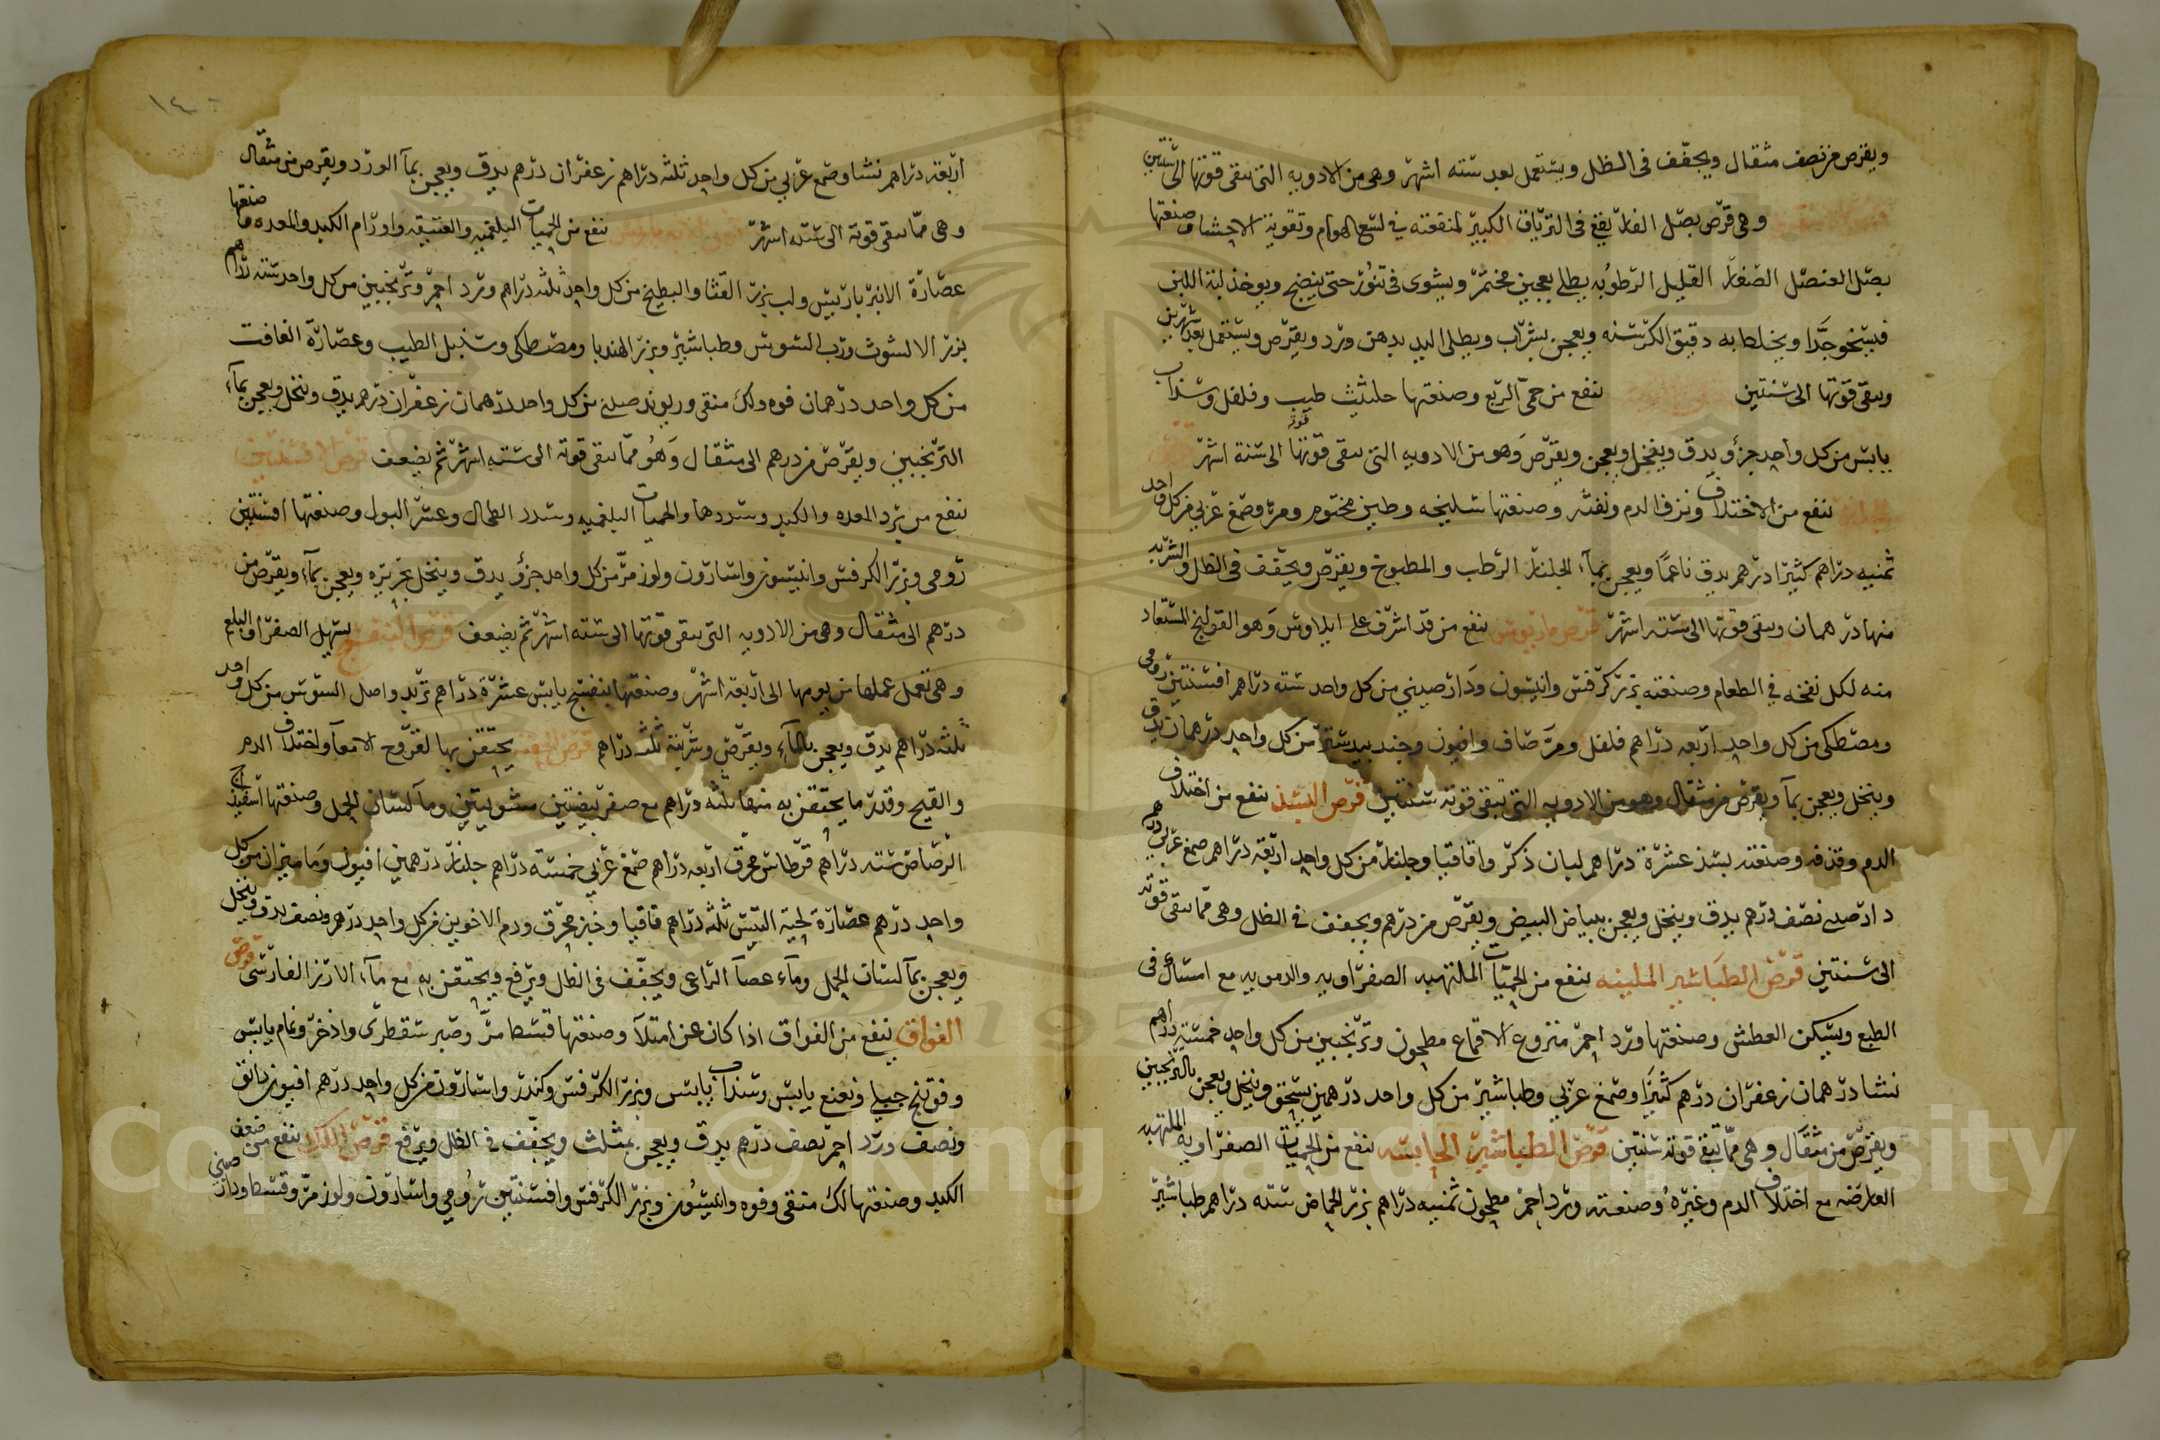 ويقرص من نصف مثقال ويجفف في الظل ويستعمل بعد ستة اشهر وهي من الادويه التي تبقى قوتها الى سنتين
وهي قرص بصل الفار يقع في الترياق الكبير لمنفعته في لسع الهوام وتقوية الاحشا وصنعتها
بصل العنصل الصغار القليل الرطوبه يطلى بعجين مختمر ويشوى في تنور حتى ينضج ويوخذ لبه اللين
فيسحق جدا ويخلط به دقيق الكرسنه ويعجن بشراب ويطلى اليد بدهن ورد ويقرص ويستعمل بعد شهرين
وتبقى قوتها الى سنتين ينفع من حمى الربع وصنعتها حلتيت طيب وفلفل وسذاب
يابس من كل واحد جزؤ يدق وينخل ويعجن ويقرص وهو من الادويه التي تبقى قوتها الى ستة اشهر
ينفع من الاختلاف ونزف الدم ونفثه وصنعتها سليخه وطين مختوم ومر وصمغ عربي من كل واحد
ثمنيه دراهم كثيرا درهم يدق ناعما ويعجن بمآء الجلنار الرطب والمطبوخ ويقرص ويجفف في الظل والشربه
منها درهمان وتبقى قوتها الى ستة اشهر قرص ماريوس ينفع من قد اشرف على ايلاوس وهو القولنج المستعاد
منه لكل نفخه في الطعام وصنعته بزر كرفس وانيسون ودارصيني من كل واحد سته دراهم افسنتين رومي
ومصطكى من كل واحد اربعه دراهم فلفل ومر صاف وافيون وجندبيدستر من كل واحد درهمان يدق
وينخل ويعجن بمآ ويقرص من مثقال وهو من الادويه التي تبقى قوته سنتين قرص البسذ ينفع من اختلاف
الدم وقذفه وصنعته بسذ عشرة دراهم لبان ذكر واقاقيا وجلنار من كل واحد اربعة دراهم صمغ عربي درهم
دارصيني نصف درهم يدق وينخل ويعجن ببياض البيض ويقرص من درهم ويجفف في الظل وهي مما تبقى قوته
الى سنتين قرص الطباشير الملينه ينفع من الحميات الملتهبه الصفراويه والدمويه مع امساك في
الطبع ويسكن العطش وصنعتها ورد احمر منزوع الاقماع مطحون وترنجبين من كل واحد خمسة دراهم
نشا درهمان زعفران درهم كثيرا وصمغ عربي وطباشير من كل واحد درهمين يسحق وينخل ويعجن بالترنجبين
ويقرص من مثقال وهي مما تبقى قوته سنتين قرص الطباشير الحابسه ينفع من الحميات الصفراويه الملتهبه
العارضه مع اختلاف الدم وغيره وصنعته ورد احمر مطحون ثمنيه دراهم بزر الحماض سته دراهم طباشير
١٤٠
اربعة دراهم نشا وصمغ عربي من كل واحد ثلثه دراهم زعفران درهم يدق ويعجن بمآ الورد ويقرص من مثقال
وهي مما تبقى قوته الى سته اشهر ينفع من الحميات البلغميه والعتيقه واورام الكبد والمعده وصنعتها
عصارة الانبرباريس ولب بزر القثا والبطيخ من كل واحد ثلثه دراهم ورد احمر وترنجبين من كل واحد سته دراهم
بزر الاكشوث ورب السوس وطباشير وبزر الهندبا ومصطكى وسنبل الطيب وعصارة الغافت
من كل واحد درهمان فوه ولك منقى وريوند صيني من كل واحد درهمان زعفران درهم يدق وينخل ويعجن بمآء
الترنجبين ويقرص من درهم الى مثقال وهو مما تبقى قوته الى سته اشهر ثم يضعف قرص الافسنتين
ينفع من برد المعده والكبد وسددهما والحميات البلغميه وسدد الطحال وعسر البول وصنعتها افسنتين
رومي وبزر الكرفس وانيسون واسارون ولوز مر من كل واحد جزؤ يدق وينخل بحريره ويعجن بمآء ويقرص من
درهم الى مثقال وهي من الادويه التي تبقى قوتها الى سته اشهر ثم يضعف قرص البنفسج يسهل الصفرا والبلغم
وهي تعمل عملها من يومها الى اربعة اشهر وصنعتها بنفسج يابس عشرة دراهم تربد واصل السوس من كل واحد
ثلثه دراهم يدق ويعجن بالمآء ويقرص وشربته ثلثه دراهم يحتقن بها لقروح الامعآ واختلاف الدم
والقيح وقدر ما يحتقن به منها ثلثه دراهم مع صفر بيضتين مشويتين ومآ لسان الحمل وصنعتها اسفيذاج
الرصاص سته دراهم قرطاس محرق اربعه دراهم صمغ عربي خمسة دراهم جلنار درهمين افيون وماميران من كل
واحد درهم عصارة لحية التيس ثلثه دراهم قاقيا وخبز محرق ودم الاخوين من كل واحد درهم ونصف يدق وينخل
ويعجن بمآ لسان الحمل ومآء عصا الراعى ويجفف في الظل ويرفع ويحتقن به مع مآء الارز الفارسى قرص
الفواق ينفع من الفواق اذا كان عن امتلآ وصنعتها قسط مر وصبر سقطرى واذخر ونمام يابس
وفوتنج جبلي ونعنع يابس وسذاب يابس وبزر الكرفس وكندر واسارون من كل واحد درهم افيون دانق
ونصف ورد احمر نصف درهم يدق ويعجن بمثلث ويجفف في الظل ويرفع قرص اللك ينفع من ضعف
الكبد وصنعتها لك منقى وفوه وانيسون وبزر الكرفس وافسنتين رومي واسارون ولوز مر وقسط ودارصيني
Copyright © King Saud University